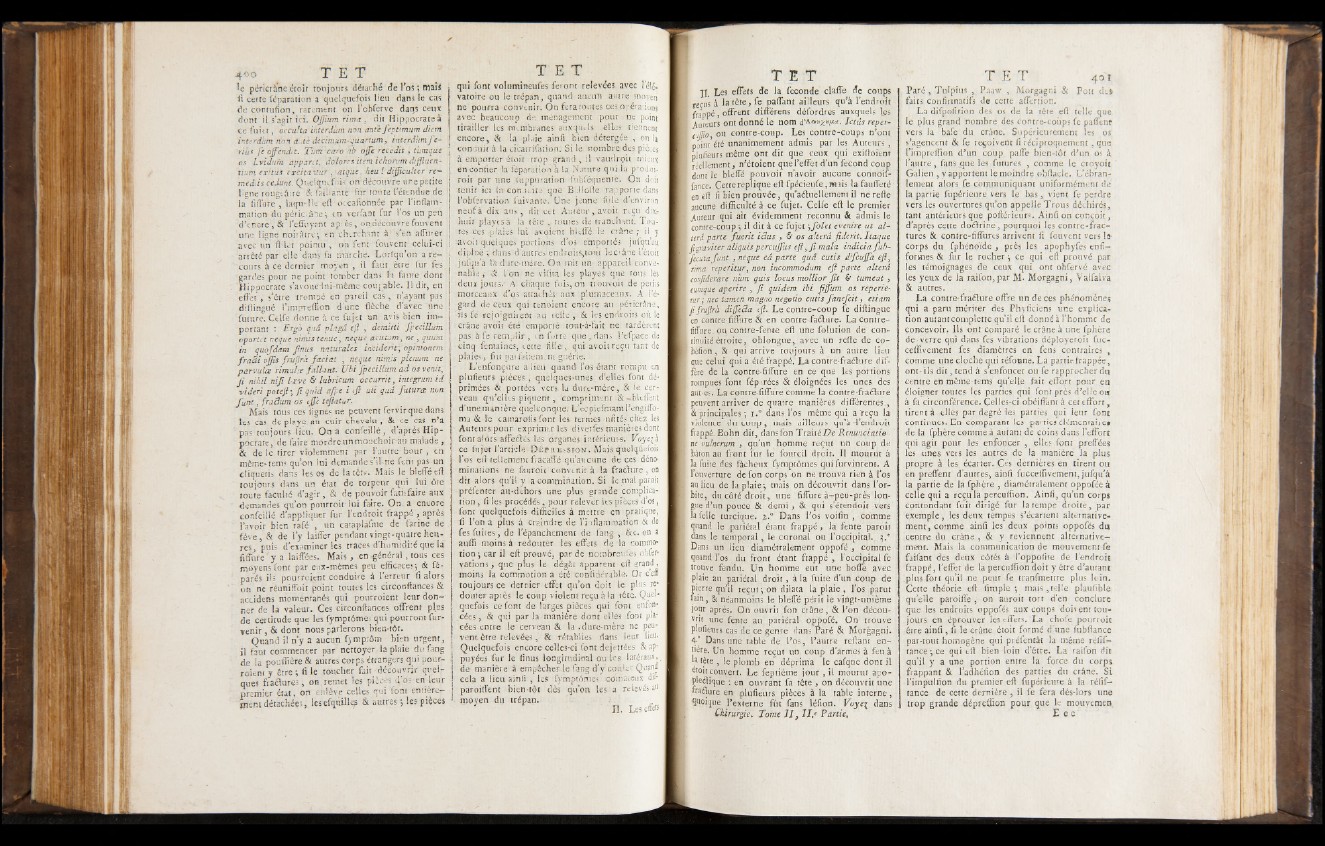 400 TET
le péricrâne étoit toujours détaché de l'os ; mais
si cette séparation a quelquefois lieu dans le cas
de contusion, rarement on l'observe dans ceux
dont il s'agit ici. Ossium rimæ, dit Hippocrate à
ce sujet, occulta interdum non ante septimum diem
interdum non ante decimum-quartum, interdum se-
riùs se ostendit. Tum caro ab osse recedit, tumque
os lividum apparet, dolores item ichorum diffluen-
tium
ligne rougeâtre & saillante sur toute l'étendue de
la fissure, laquelle est occasionnée par l'inflam-
mation du péricrâne ; en versant sur l'os un peu
d'encre, & l'essuyant après, on découvre souvent
une ligne noirâtre ; en cherchant à s'en assurer
avec un stilet pointu, on sent souvent celui-ci
arrêté par elle dans sa marche. Lorsqu'on a re-
cours à ce dernier moyen, il faut être sur ses
gardes pour ne point tomber dans la faute dont
Hippocrate s'avoue lui-même coupable. Il dit, en
effet, s'être trompé en pareil cas, n'ayant pas
distingué l'impression d'une flèche d'avec une
suture. Celse donne à ce sujet un avis bien im-
portant : Ergò quà plaga est, demitti specillum
oportet neque nimis tenue, neque acutum, ne, quum
in quosdam sinus naturales inciderit, opinionem
fracti ossis frustrà faciat, neque nimis plenum ne
parvulæ rimulæ fallant. Ubi specillum ad os venit,
si nihil nisi læve & lubricum occurrit, integrum id
videri potest ; si quid asperi est utique quà suturæ non
sunt, fractum os esse testatur.
Mais tous ces signes ne peuvent servir que dans
les cas de playe au cuir chevelu, & ce cas n'a
pas toujours lieu. On a conseillé, d'après Hip-
pocrate, de faire mordre un mouchoir au malade,
& de le tirer violemment par l'autre bout, en
même-tems qu'on lui demande s'il ne sent pas un
cliquetis dans les os de la tête. Mais le blessé est
toujours dans un état de torpeur qui lui ôte
toute faculté d'agir, & de pouvoir satisfaire aux
demandes qu'on pourroit lui faire. On a encore
conseillé d'appliquer sur l'endroit frappé, après
l'avoir bien rasé, un cataplasme de farine de
féve, & de l'y laisser pendant vingt-quatre heu-
res, puis d'examiner les traces d'humidité que la
fissure y a laissées. Mais, en général, tous ces
moyens sont par eux-mêmes peu efficaces ; & sé-
parés ils pourroient conduire à l'erreur si alors
on ne réunissoit point toutes les circonstances &
accidens momentanés qui pourroient leur don-
ner de la valeur. Ces circonstances offrent plus
de certitude que les symptômes qui pourront sur-
venir, & dont nous parlerons bien-tôt.
Quand il n'y a aucun symptôm bien urgent,
il faut commencer par nettoyer la plaie du sang
de la poussière & autres corps étrangers qui pour-
roient y être ; si le toucher fait découvrir quel-
ques fractures, on remet les pièces d'os en leur
premier état, on enlève celles qui sont entière-
ment détachées, les esquilles & autres ; les pièces
TET
qui sont volumineuses seront relevées avec l'élé-
vatoire ou le trépan, quand aucun autre moyen
ne pourra convenir. On fera toutes ces opérations
avec beaucoup de ménagement pour ne point
tirailler les membranes auxquels elles tiennent
encore, & la plaie ainsi bien détergée, on la
conduit à la cicatrisation. Si le nombre des pièces
à emporter étoit trop grand, il vaudroit mieux
en confier la séparation à la Nature qui la produi-
roit par une suppuration subséquente. On doit
tenir ici la conduite que Bilfolle rapporte dans
l'observation suivante. Une jeune fille d'environ
neuf à dix ans, dit cet Auteur, avoit reçu dix-
huit playes à la tête, toutes de tranchant. Tou-
tes ces plaies lui avoient blessé le crâne ; il y
avoit quelques portions d'os emportés jusqu'au
diploé, dans d'autres endroits, tout le crâne l'étoit
jusqu'à la dure-mère. On mit un appareil conve-
nable, & l'on ne visita les playes que tous les
deux jours. A chaque fois, on trouvoit de petits
morceaux d'os attachés aux plumaceaux. A l'é-
gard de ceux qui tenoient encore au péricrâne,
ils se rejoignirent au reste, & les endroits où le
crâne avoit été emporté tout-à-fait ne tardèrent
pas à se remplir, en sorte que, dans l'espace de
cinq semaines, cette fille, qui avoit reçu tant de
plaies, fut parfaitement guérie.
L'enfonçure a lieu quand l'os étant rompu en
plusieurs pièces, quelques-unes d'elles sont dé-
primées & portées vers la dure-mère, & le cer-
veau qu'elles piquent, compriment & blessent
d'une manière quelconque. L'ecpiesmam l'engisso-
ma & le camarosis sont les termes usités chez les
Auteurs pour exprimer les diverses manières dont
sont alors affectés les organes intérieurs. Voyez à
ce sujet l'article DÉPRESSION. Mais quelquefois
l'os est tellement fracassé qu'aucune de ces déno-
minations ne sauroit convenir à la fracture, on
dit alors qu'il y a comminution. Si le mal paroît
présenter au-dehors une plus grande complica-
tion, si les procédés, pour relever les pièces d'os,
sont quelquefois difficiles à mettre en pratique,
si l'on a plus à craindre de l'inflammation & de
ses suites, de l'épanchement de sang, &c. on a
aussi moins à redouter les effets de la commo-
tion ; car il est prouvé, par de nombreuses obser-
vations, que plus le dégât apparent est grand,
moins la commotion a été considérable. Or c'est
toujours ce dernier effet qu'on doit le plus re-
douter après le coup violent reçu à la tête. Quel-
quefois ce sont de larges pièces qui sont enfon-
cées, & qui par la manière dont elles sont pla-
cées entre le cerveau & la dure-mère ne peu-
vent être relevées, & rétablies dans leur lieu.
Quelquefois encore celles-ci sont déjettées & ap-
puyées sur le sinus longitudinal ou les latéraux,
de manière à empêcher le sang d'y couler. Quand
cela a lieu ainsi, les symptômes comateux dis-
paroissent bien-tôt dès qu'on les a relevés au
moyen du trépan.
II. Les effets
TET
II. Les effets de la seconde classe de coups
reçus à la tête, se passant ailleurs qu'à l'endroit
frappé, offrent différens désordres auxquels les
Auteurs ont donné le nom d'
ou contre-coup. Les contre-coups n'ont
point été unanimement admis par les Auteurs,
plusieurs même ont dit que ceux qui existoient
réellement, n'étoient que l'effet d'un second coup
dont le blessé pouvoit n'avoir aucune connois-
sance. Cette replique est spécieuse, mais la fausseté
en est si bien prouvée, qu'actuellement il ne reste
aucune difficulté à ce sujet. Celse est le premier
Auteur qui ait évidemment reconnu & admis le
contre-coup ; il dit à ce sujet ; solet evenire ut al-
terâ parte fuerit ictus, & os alterâ fiderit. Itaque
si graviter aliquis percussus est, si mala indicia sub-
secuta sunt, neque eâ parte quâ cutis discussa est,
rima reperitur, non incommodum est parte alterâ
considerare num quis locus mollior sit & tumeat,
eumque aperire, si quidem ibi fissum os reperie-
tur ; nec tamen magno negotio cutis sanescit, etiam
si frustrà dissecta est. Le contre-coup se distingue
en contre fissure & en contre facture. La contre-
fissure ou contre-fente est une solution de con-
tinuité étroite, oblongue, avec un reste de co-
hésion, & qui arrive toujours à un autre lieu
que celui qui a été frappé. La contre-fracture dif-
fère de la contre-fissure en ce que les portions
rompues sont séparées & éloignées les unes des
autres. La contre-fissure comme la contre-fracture
peuvent arriver de quatre manières différentes,
& principales ; 1.° dans l'os même qui a reçu la
violence du coup, mais ailleurs qu'à l'endroit
frappé. Bohn dit, dans son Traité De Renunciatio-
ne vulnerum, qu'un homme reçut un coup de
bâton au front sur le sourcil droit. Il mourut à
la suite des fâcheux symptômes qui survinrent. A
l'ouverture de son corps on ne trouva rien à l'os
au lieu de la plaie ; mais on découvrit dans l'or-
bite, du côté droit, une fissure à-peu-près lon-
gue d'un pouce & demi, & qui s'étendoit vers
la selle turcique. 2.° Dans l'os voisin, comme
quand le pariétal étant frappé, la fente paroît
dans le temporal, le coronal ou l'occipital. 3.°
Dans un lieu diamétralement opposé, comme
quand l'os du front étant frappé, l'occipital se
trouve fendu. Un homme eut une bosse avec
plaie au pariétal droit, à la suite d'un coup de
pierre qu'il reçut ; on dilata la plaie, l'os parut
sain, & néanmoins le blessé périt le vingt-unième
jour après. On ouvrit son crâne, & l'on décou-
vrit une fente au pariétal opposé. On trouve
plusieurs cas de ce genre dans Paré & Morgagni.
4.° Dans une table de l'os, l'autre restant en-
tière. Un homme reçut un coup d'armes à feu à
la tête, le plomb en déprima le casque dont il
étoit couvert. Le septième jour, il mourut apo-
plectique : en ouvrant sa tête, on découvrit une
fracture en plusieurs pièces à la table interne,
quoique l'externe fût sans lésion. Voyez dans
Chirurgie. Tome II, II.e Partie.
TET 401
Paré, Tulpius, Paaw, Morgagni & Pott des
faits confirmatifs de cette assertion.
La disposition des os de la tête est telle que
le plus grand nombre des contre-coups se passent
vers la base du crâne. Supérieurement les os
s'agencent & se reçoivent si réciproquement, que
l'impression d'un coup passe bien-tôt d'un os à
l'autre, sans que les sutures, comme le croyoit
Galien, y apportent le moindre obstacle. L'ébran-
lement alors se communiquant uniformément de
la partie supérieure vers le bas, vient se perdre
vers les ouvertures qu'on appelle Trous déchirés,
tant antérieurs que postérieurs. Ainsi on conçoit,
d'après cette doctrine, pourquoi les contre-frac-
tures & contre-fissures arrivent si souvent vers le
corps du sphénoïde, près les apophyses ensi-
formes & sur le rocher ; ce qui est prouvé par
les témoignages de ceux qui ont observé avec
les yeux de la raison, par M. Morgagni, Valsalva
& autres.
La contre-fracture offre un de ces phénomènes
qui a paru mériter des Physiciens une explica-
tion autant complette qu'il est donné à l'homme de
concevoir. Ils ont comparé le crâne à une sphère
de verre qui dans ses vibrations déployeroit suc-
cessivement ses diamètres en sens contraires,
comme une cloche qui résonne. La partie frappée,
ont-ils dit, tend à s'enfoncer ou se rapprocher du
centre en même-tems qu'elle fait effort pour en
éloigner toutes les parties qui sont près d'elle ou
à sa circonférence. Celles-ci obéissant à cet effort,
tirent à elles par degré les parties qui leur sont
continues. En comparant les parties élémentaires
de la sphère comme à autant de coins dans l'effort
qui agit pour les enfoncer, elles sont pressées
les unes vers les autres de la manière la plus
propre à les écarter. Ces dernières en tirent ou
en pressent d'autres, ainsi successivement, jusqu'à
la partie de la sphère, diamétralement opposée à
celle qui a reçu la percussion. Ainsi, qu'un corps
contondant soit dirigé sur la tempe droite, par
exemple, les deux tempes s'écartent alternative-
ment, comme ainsi les deux points opposés du
centre du crâne, & y reviennent alternative-
ment. Mais la communication de mouvement se
faisant des deux côtés à l'opposite de l'endroit
frappé, l'effet de la percussion doit y être d'autant
plus fort qu'il ne peut se transmettre plus loin.
Cette théorie est simple ; mais, telle plausible
qu'elle paroisse, on auroit tort d'en conclure
que les endroits opposés aux coups doivent tou-
jours en éprouver les effets. La chose pourroit
être ainsi, si le crâne étoit formé d'une substance
par-tout homogène qui présentât la même résis-
tance ; ce qui est bien loin d'être. La raison dit
qu'il y a une portion entre la force du corps
frappant & l'adhésion des parties du crâne. Si
l'impulsion du premier est supérieure à la résis-
tance de cette dernière, il se fera dès-lors une
trop grande dépression pour que le mouvement
E e e